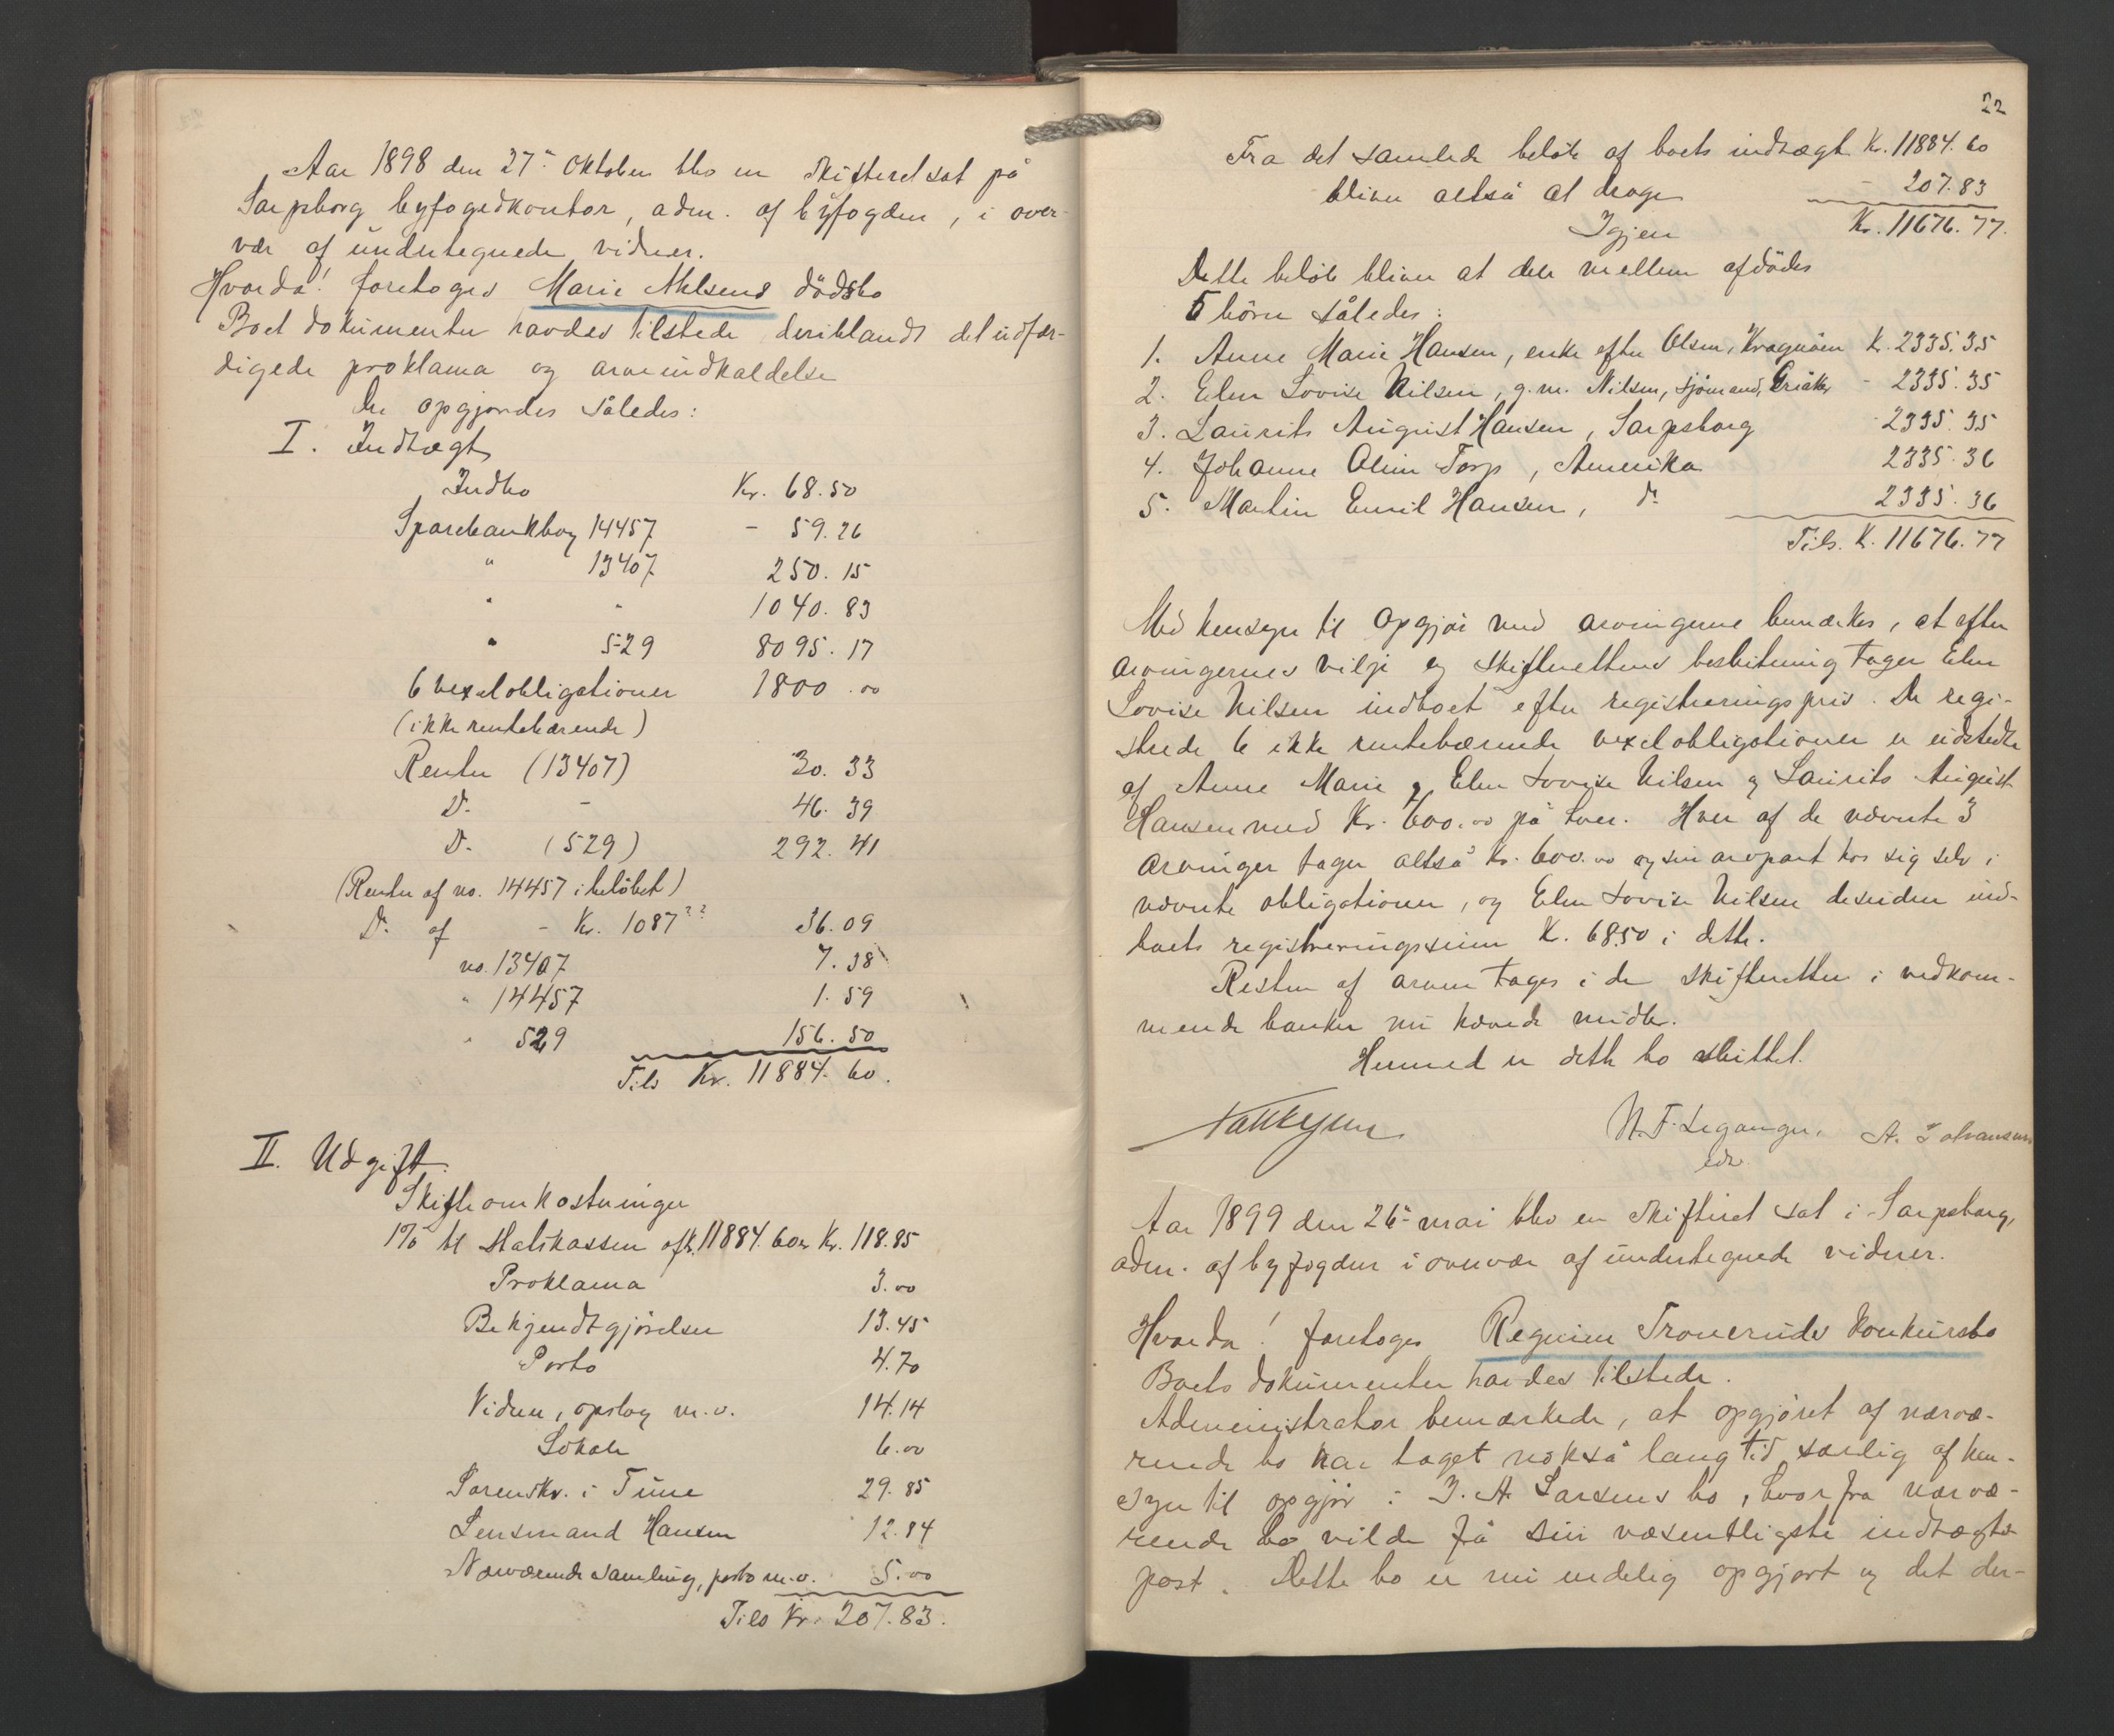 Aar 1898 den 27de Oktober blev en skifteret sat på
Sarpsborg byfogedkontor, adm. af byfogden, i over-
vær af undertegnede vidner.
Hvorda! foretoges Marie Nilsens dödsbo
Boet dokumenter havdes tilstede deriblandt det udfær-
digede proklama og arveindkaldelse
Der opgjordes således:
I. Indtægt
Indbo Kr. 68.50
Sparebankbog 14457 - 59.26
" 13407 250.15
" " 1040.83
" 529 8095.17
6 vexelobligationer 1800.00
(ikke rentebærende)
Renter (13407) 30.33
Do - 46.39
Do (529) 292.41
(Renter af no. 14457 i beløbet)
Do af - Kr. 1087 36.09
no. 13407 7.38
" 14457 1.59
" 529 156.50
Tils Kr. 11884.60.
II. Udgift
Skifteomkostninger
1% til Statskassen af k. 11884.60 = Kr. 118.85
Proklama 3.00
Bekjendtgjörelser 13.45
Porto 4.70
Vidner, opslag m.v. 14.14
Lokale 6.00
Sorenskr. i Tune 29.85
Lensmand Hansen 12.84
Nærværende samling, porto m.v. 5.00
Tils Kr. 207.83.
22
Fra det samlede belöb af boets indtægt Kr. 11884.60
bliver altså at drage - 207.83
Igjen Kr. 11676.77.
Dette belöb bliver at dele mellem afdödes
5 börn således:
1. Anne Marie Hansen, enke efter Olsen, Kragerøen K. 2335.35
2. Elen Lovise Nilsen, g.m. Nilsen, sjömand, - 2335.35
3. Laurits August Hansen, Sarpsborg - 2335.35
4. Johanne Oline Torp, Amerika 2335.36
5. Martin Emil Hansen, do 2335.36
Tils. K. 11676.77
Med hensyn til opgjör med arvingerne bemærkes, at efter
arvingernes vilje og skifterettens beslutning tager Elen
Lovise Nilsen indboet efter registreringspris. De regi-
strede 6 ikke rentebærende vexelobligationer er udstedte
af Anne Marie, Elen Lovise Nilsen og Laurits August
Hansen med Kr. 600.00 på hver. Hver af de nævnte 3
arvinger tager altså Kr. 600.00 af sin arvpart hos sig selv i
nævnte obligationer, og Elen Lovise Nilsen desuden ind-
boets registreringssum K. 68.50 i dette.
Resten af arven tages i de skifteretten i vedkom-
mende banker nu hævede midler.
Hermed er dette bo sluttet.
N. F. Leganger. A. Johansen
edv.
Aar 1899 den 26de mai blev en skifteret sat i Sarpsborg,
adm. af byfogden i overvær af undertegnede vidner.
Hvorda! foretoges Regine Tronerüds konkursbo
Boets dokumenter havdes tilstede.
Administrator bemærkede, at opgjöret af nærvæ-
rende bo har taget nokså lang tid særlig af hen-
syn til opgjör i J. A. Larsens bo, hvorfra nærvæ-
rende bo vilde få sin væsentligste indtægts-
post. Dette bo er nu endelig opgjort og det der-